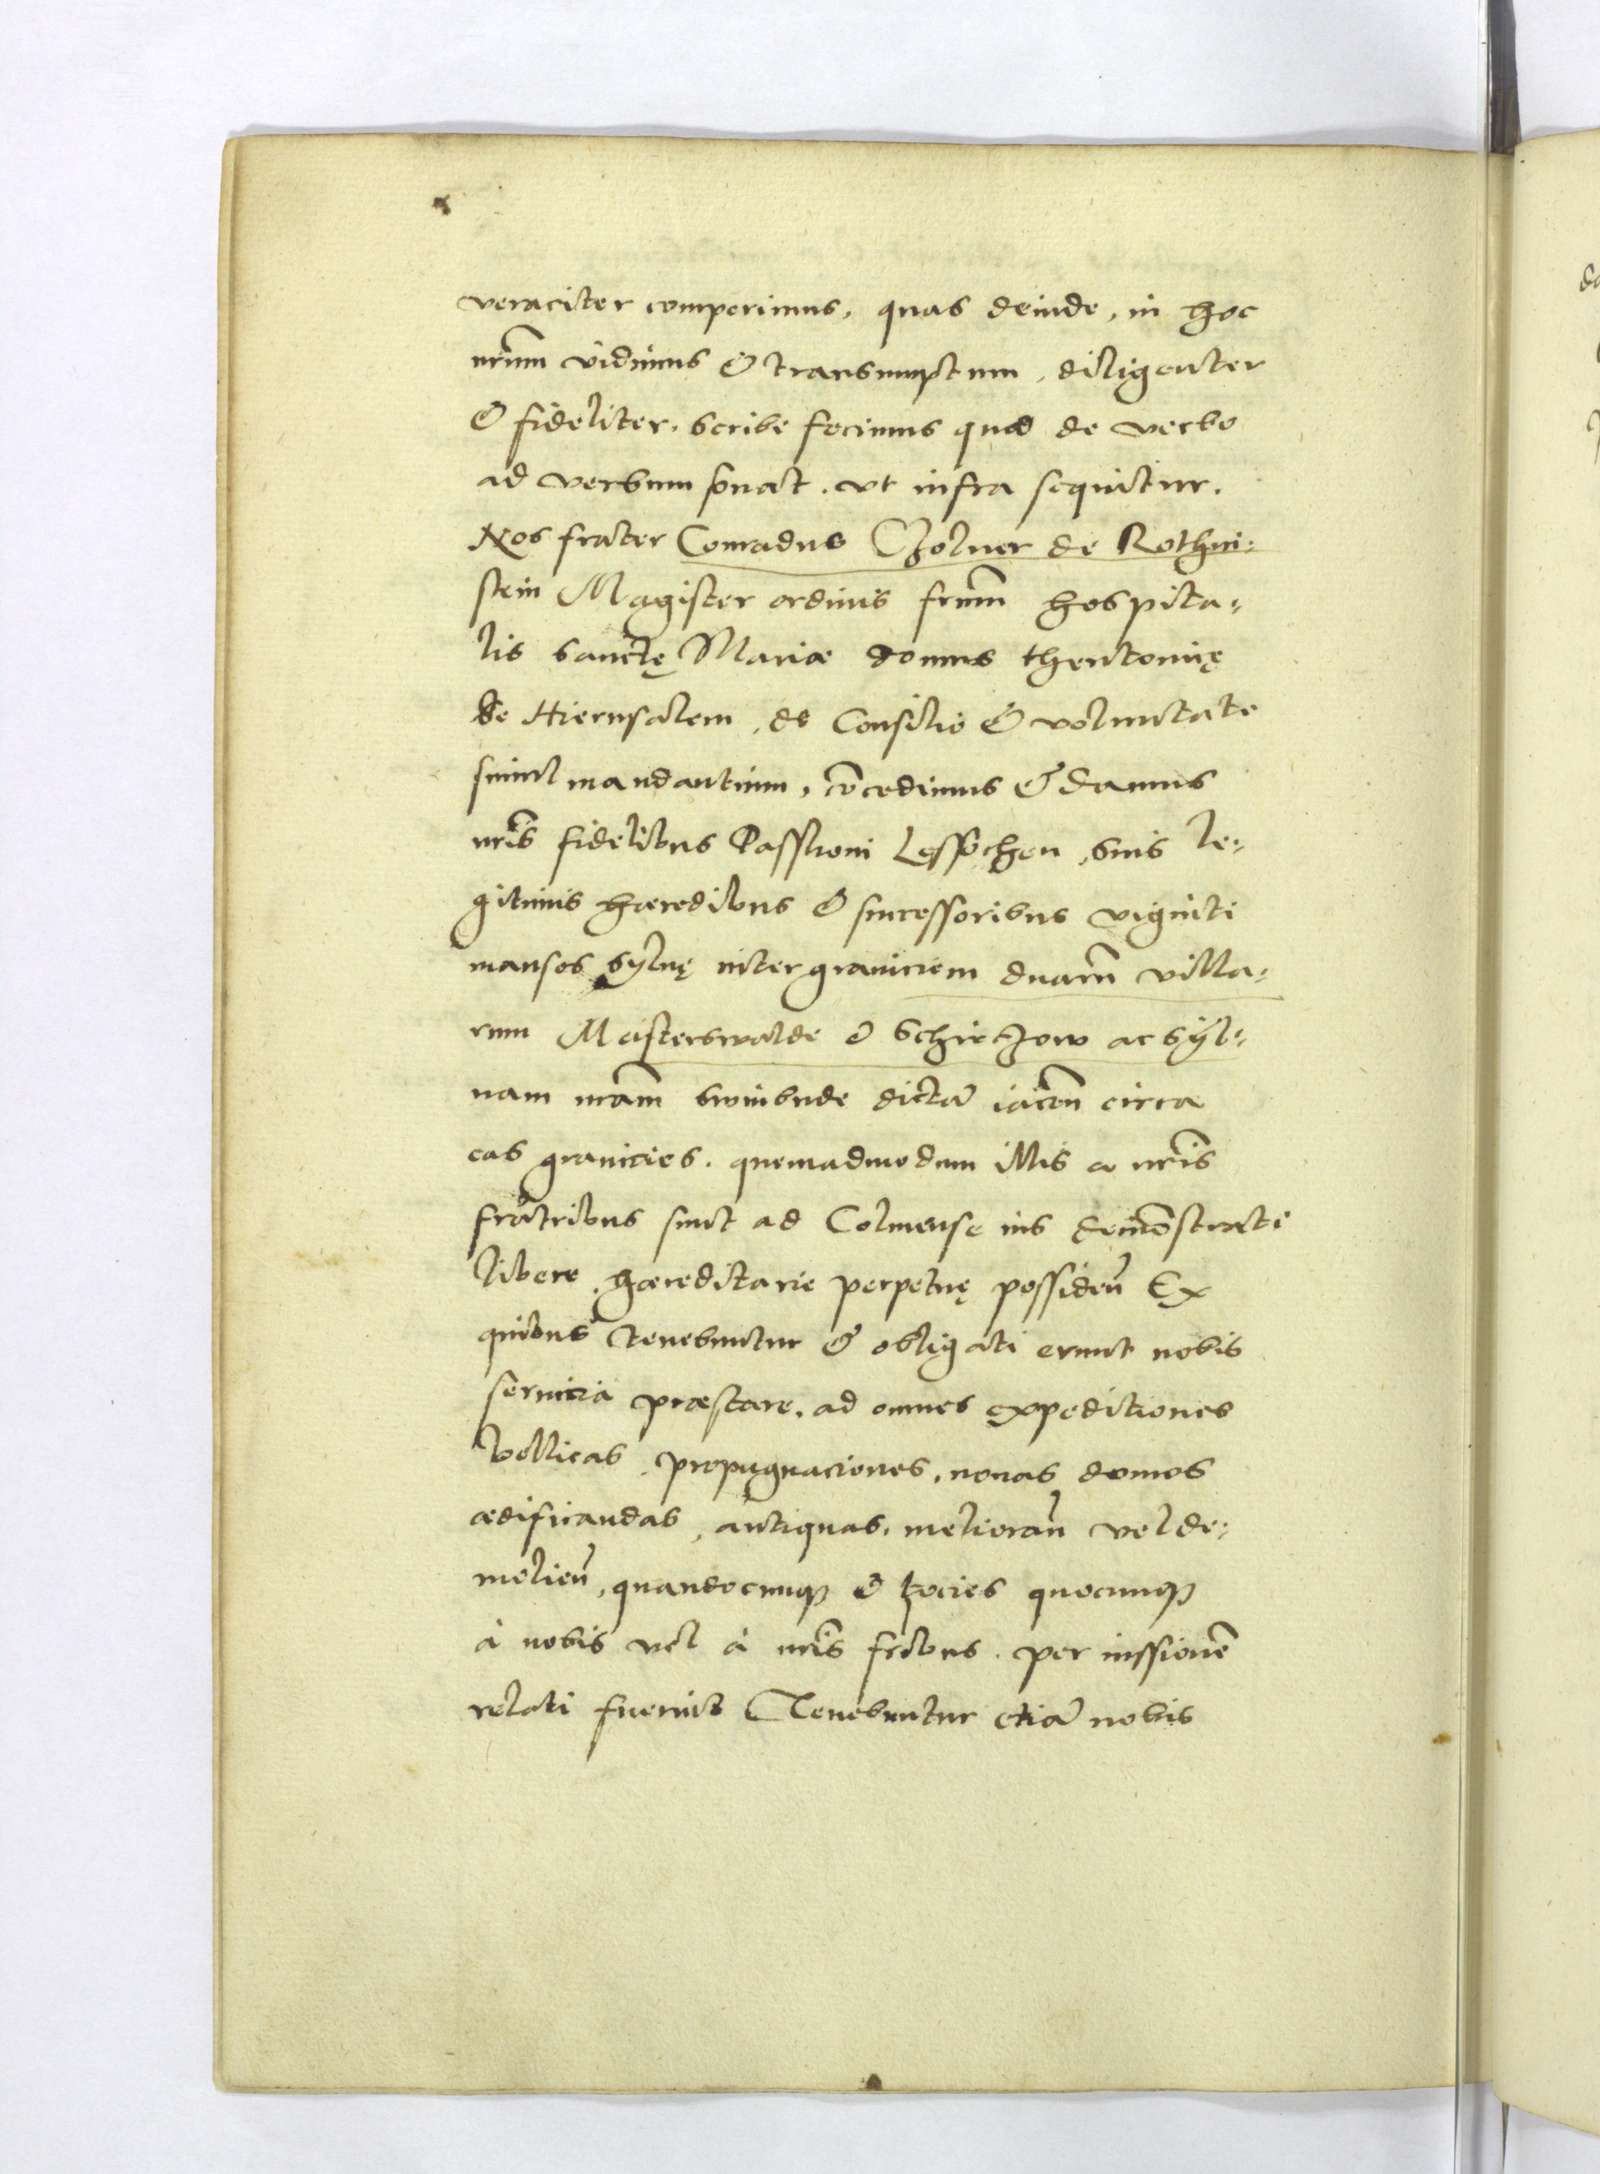 veraciter comperimus, quas deinde, in hoc
nr̃um vidimus & transumptum, diligenter
& fideliter, scribe fecimus quod de verbo
ad verbum sonat. vt infra sequitur.
Nos frater Conradus Czolner de Rothni-
stein Magister ordinis fr̃um hospita-
lis sanctę Mariæ domus theutonię
de Hierusalem, de Consilio & voluntate
simul mandantium, cõcedimus & damus
nr̃is fidelibus Passkoni Lessochen, suis le-
gitimis hæredibus & successoribus viginti
mansos sylvę inter graniciem duarũ villa-
rum Meisterswalde & Schirczow ac syl-
uam nr̃am swinbude dictã iacen̄ circa
eas granicies. quemadmodum illis a nr̃is
fratribus sunt ad Colmense ius demõstrati
libere, hæreditarie perpetuę possiden̄ Ex
quibus tenebuntur & obligati erunt nobis
seruicia præstare, ad omnes expeditiones
bellicas, propugnaciones, nouas domos
ædificandas, antiquas, melioran̄ vel de-
molien̄, quandocunqꝫ & tocies quocunqꝫ
à nobis vel à nr̃is fr̃ibus. per iussionẽ
relati fuerint Tenebuntur etiã nobis